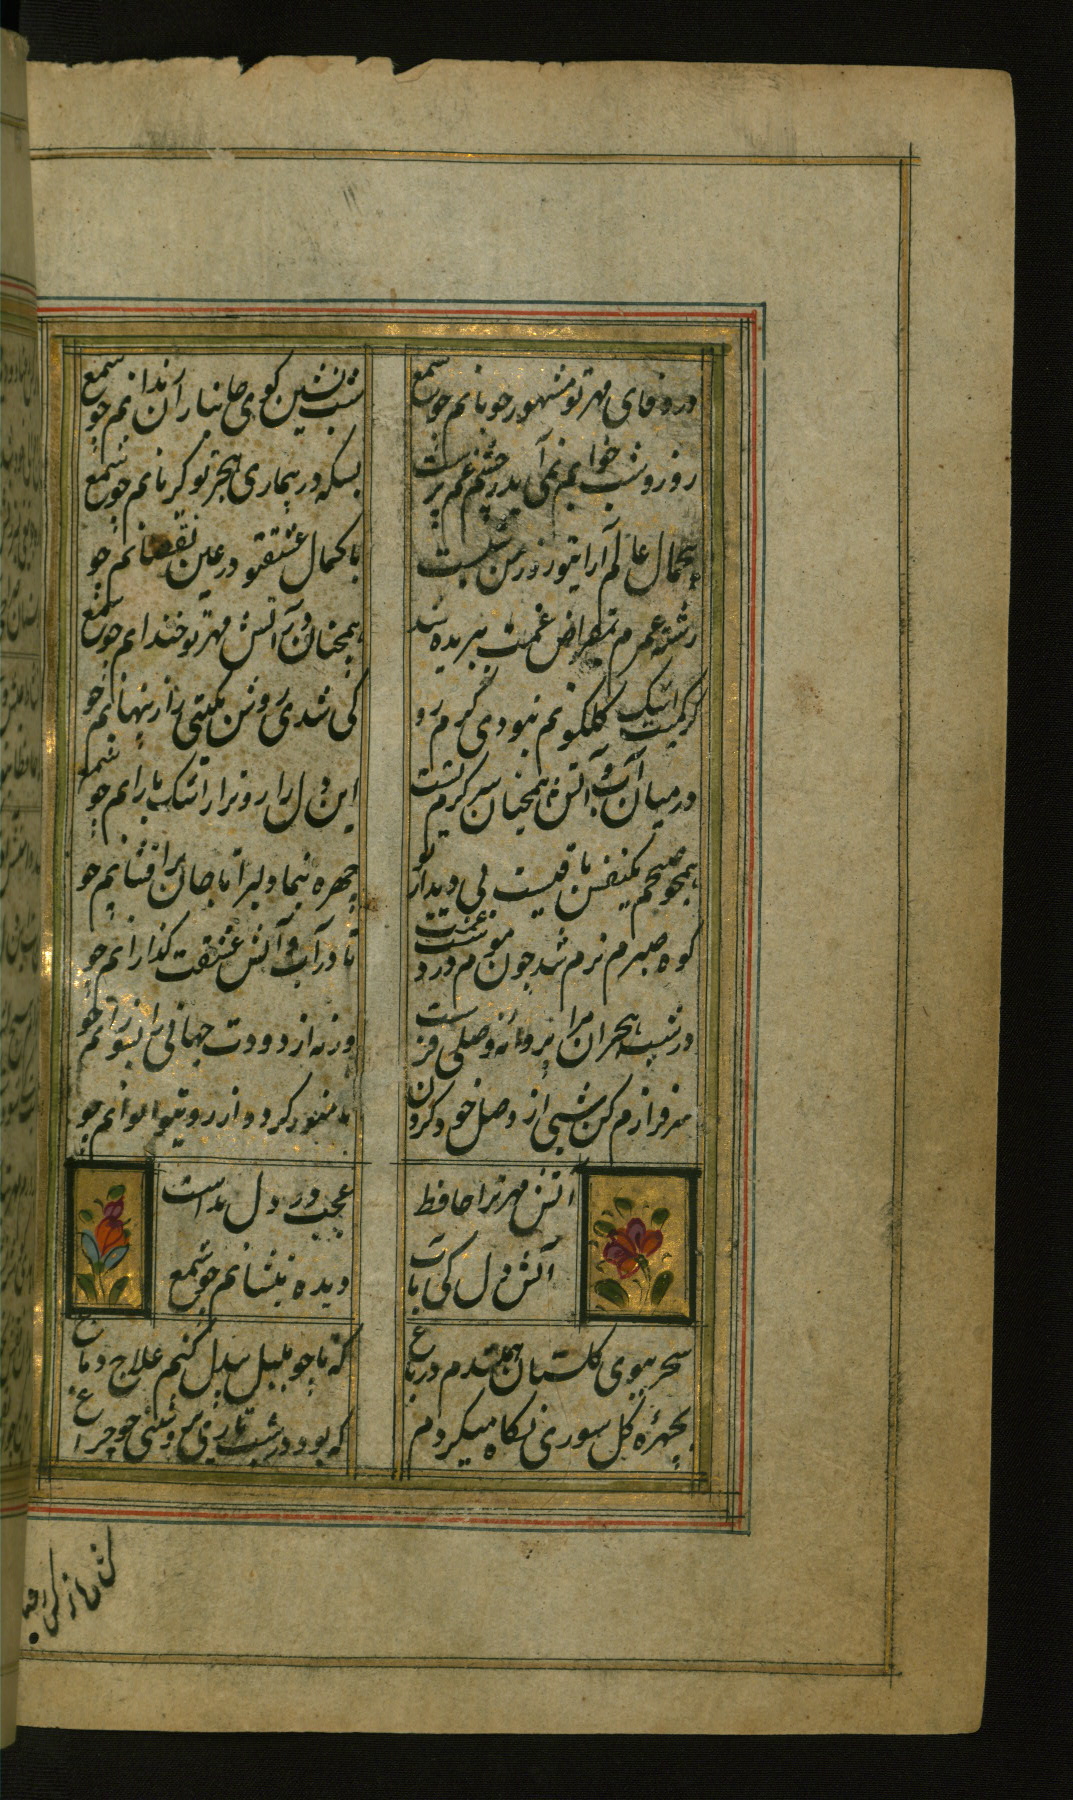 در وفای مهر تو مشهور خوبانم چو شمع
شب نشین کوی جانبازان رندانم چو شمع
روز و شب خوابم نمی آید بچشم غم پرست
بسکه در بیماری هجر تو گریانم چو شمع
بیجمال عالم آرایتو روزم چون شبست
با کمال عشقتو در عین نقصانم چو
رشته عمرم بمقراض غمت ببریده شد
همچنان در آتش مهر تو خندانم چو شمع
گر کمیت اشک گلگونم نبودی گرم رو
کی شدی روشن بگیتی راز پنهانم چو
در میان آب و آتش همچنان سرگرم تست
این دل زار و نزار اشک بارانم چو شمع
همچو صبحم یکنفس باقیست بی دیدار تو
چهره بنما دلبرا تا جان برافشانم چو
کوه صبرم نرم شد چون موم در دست غمت
تا در آب و آتش عشقت گدازانم چو
در شب هجران مرا پروانه وصلی فرست
ورنه از دودت جهانی را بسوزانم چو
سرفرازم کن شبی از وصل خود گردن
منور گردد از رویتو ایوانم چو
آتش مهر ترا حافظ
عجب در دل
است
آتش دل کی بآب
دیده بنشانم چو شمع
سحر ببوی گلستان همیشدم در باغ
که تا چو بلبل بیدل کنم علاج دماغ
بچهره گل سوری نگاه میکردم
که بود در شب تاری بروشنی چو چراغ